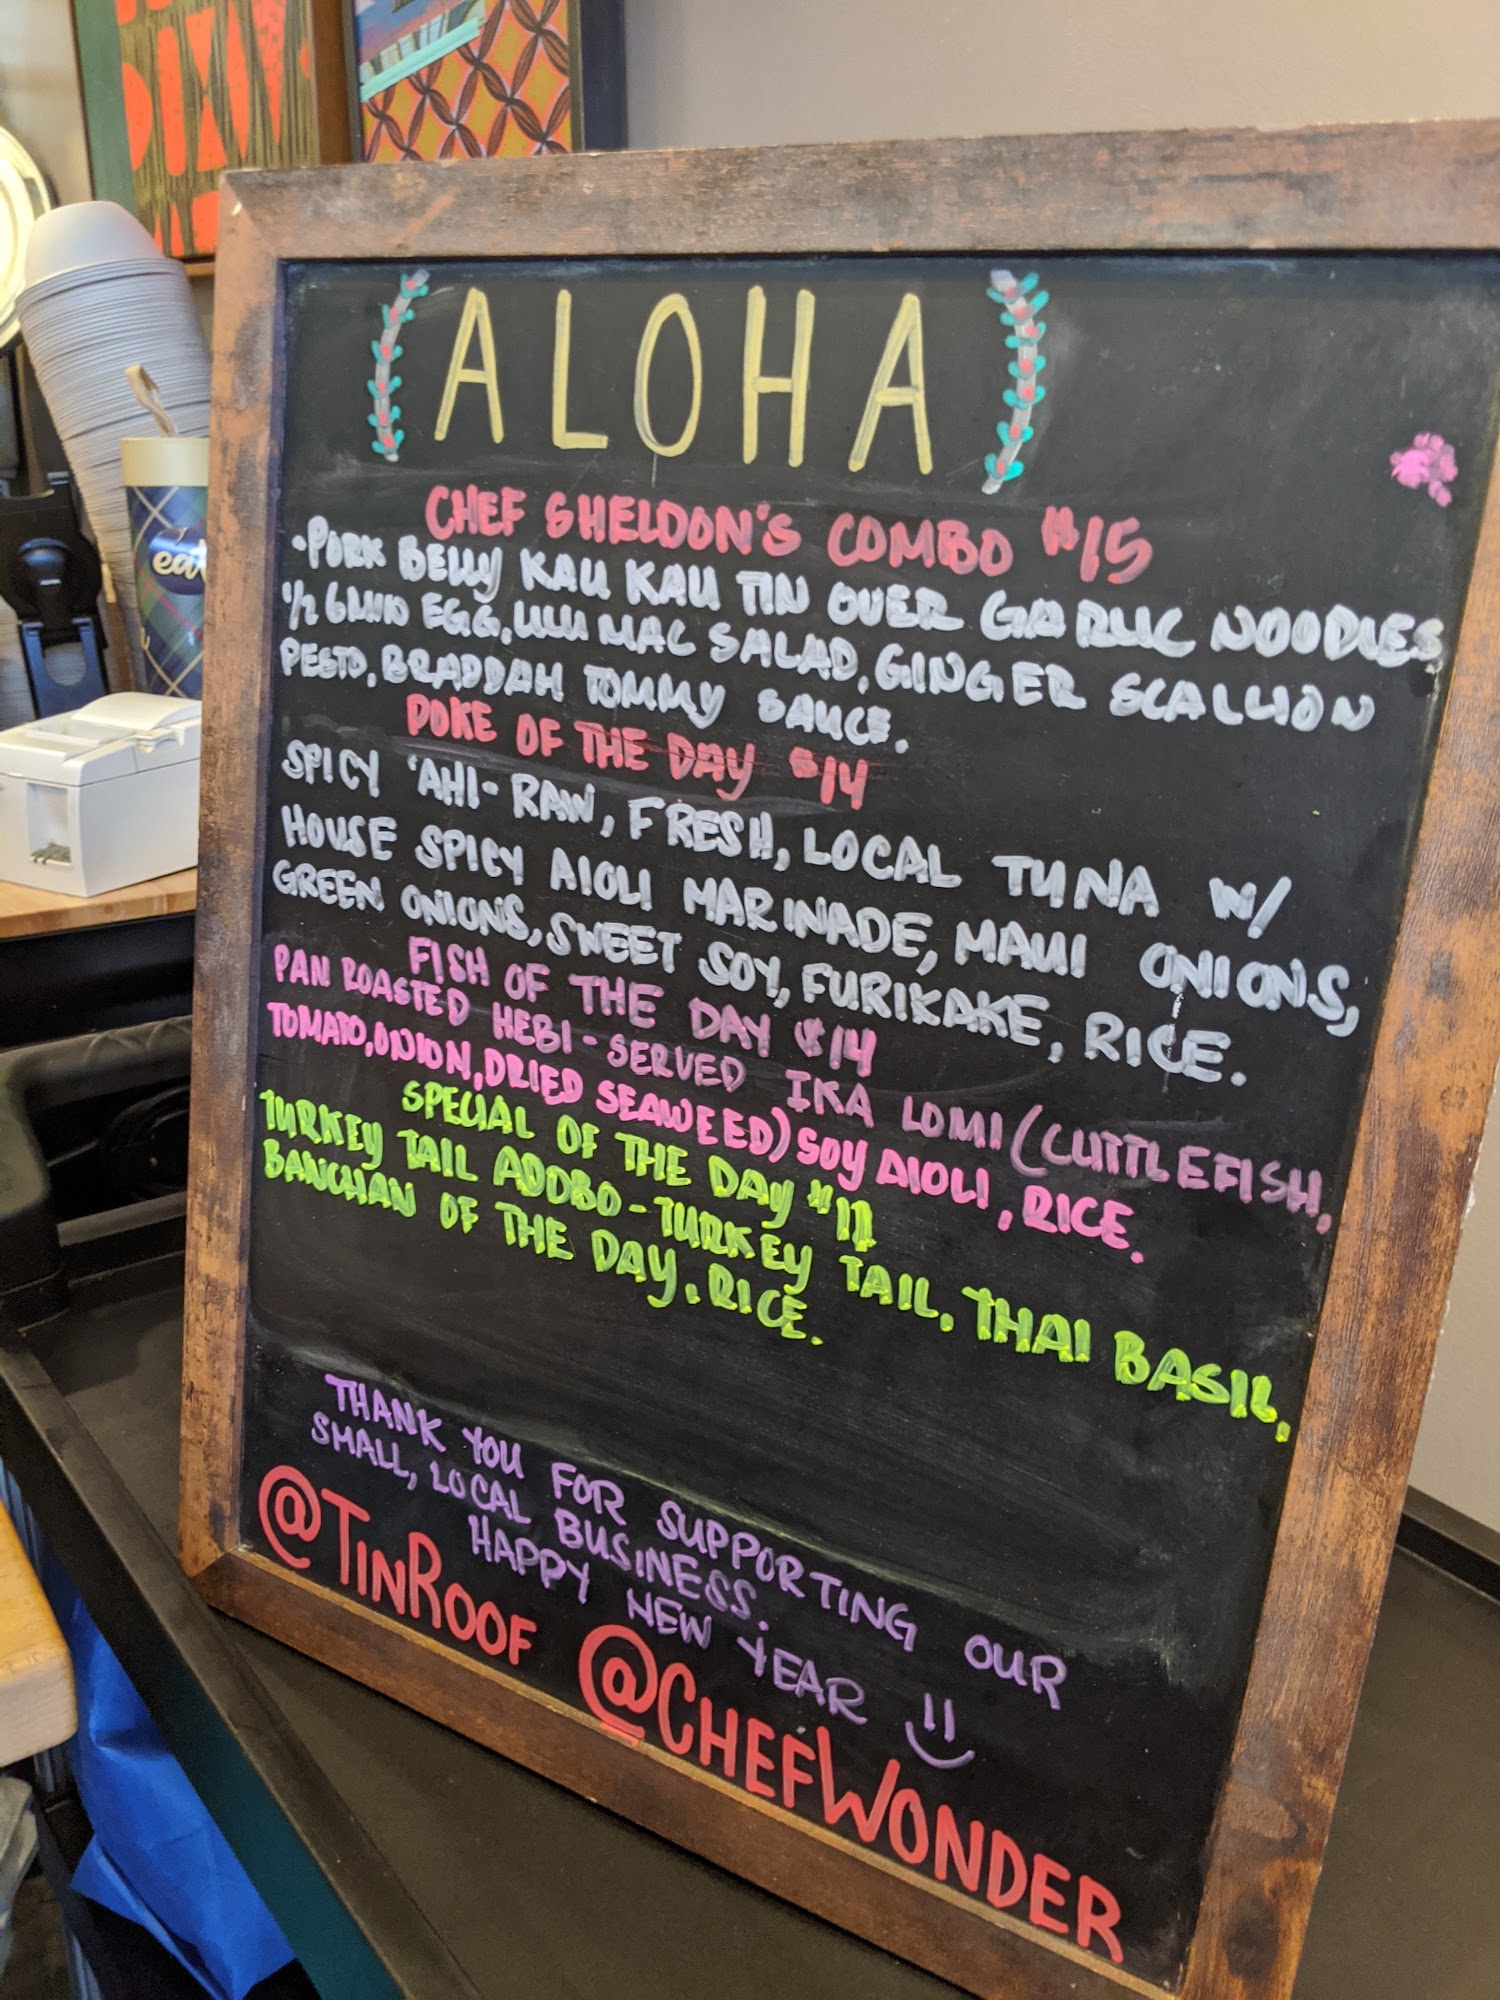 ALOHA
CHEF SHELDON'S COMBO $15
·PORK BELLY KAU KAU TIN OVER GARLIC NOODLES
1/2 6 MIN EGG, ULU MAC SALAD, GINGER SCALLION
PESTO, BRADDAH TOMMY SAUCE.
POKE OF THE DAY $14
SPICY 'AHI- RAW, FRESH, LOCAL TUNA W/
HOUSE SPICY AIOLI MARINADE, MAUI ONIONS,
GREEN ONIONS, SWEET SOY, FURIKAKE, RICE.
FISH OF THE DAY $14
PAN ROASTED HEBI - SERVED IKA LOMI (CUTTLEFISH,
TOMATO, ONION, DRIED SEAWEED) SOY AIOLI, RICE.
SPECIAL OF THE DAY $11
TURKEY TAIL ADOBO - TURKEY TAIL, THAI BASIL,
BANCHAN OF THE DAY, RICE.
THANK YOU FOR SUPPORTING OUR
SMALL, LOCAL BUSINESS.
HAPPY NEW YEAR
@TINROOF @CHEFWONDER